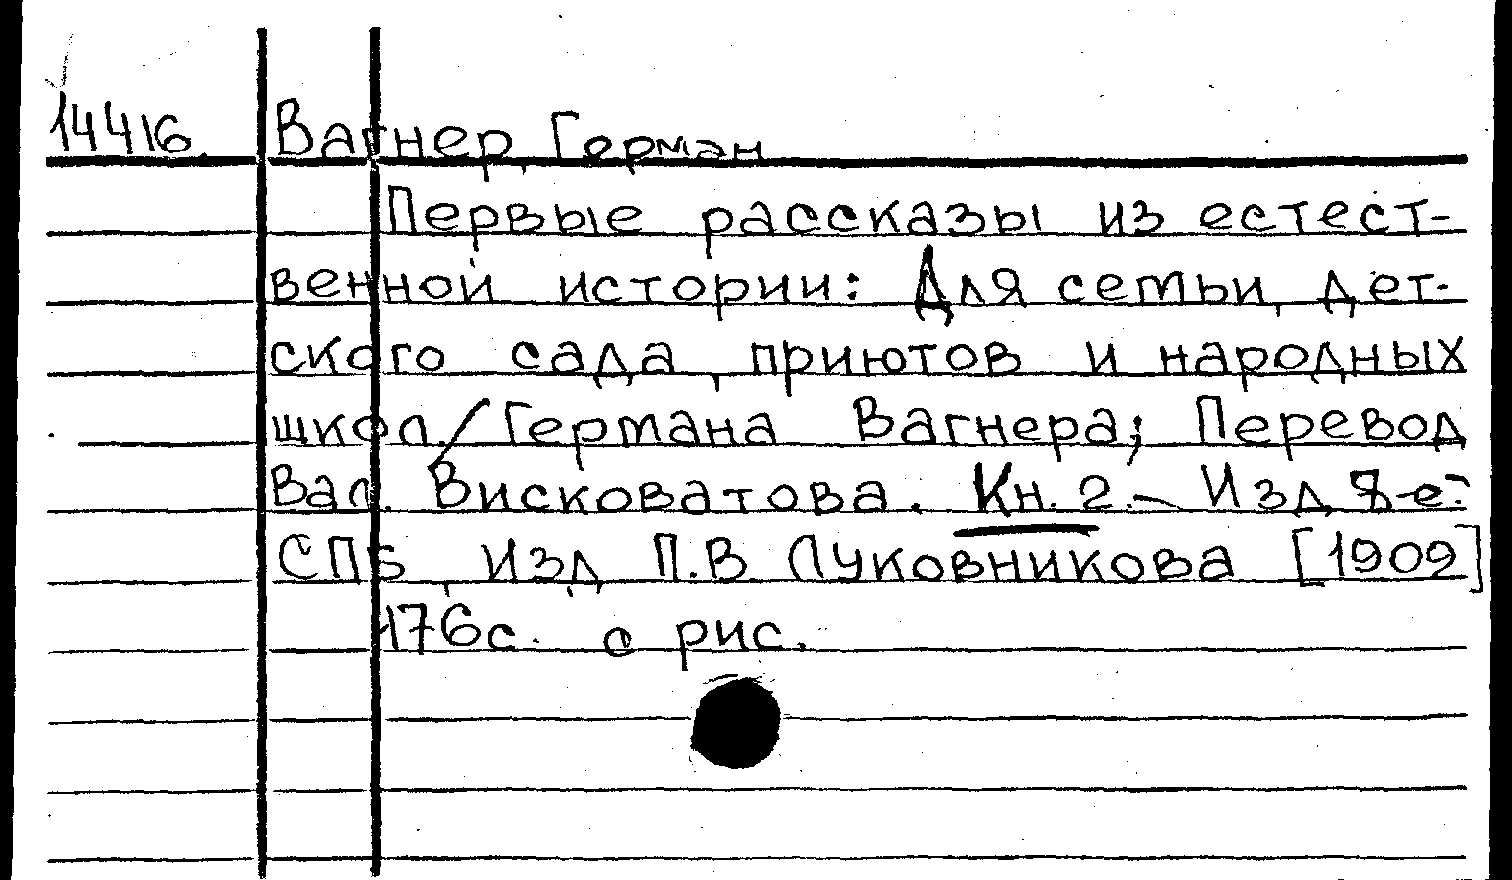 14416. Вагнер, Герман
Первые рассказы из естест-
венной истории: Для семьи, дет-
ского сада, приютов и народных
школ / Германа Вагнера; Перевод
Вал. Висковатова. Кн. 2. – Изд 8-е.-
СПБ, Изд. П.В. Луковникова [1909]
176с. с рис.